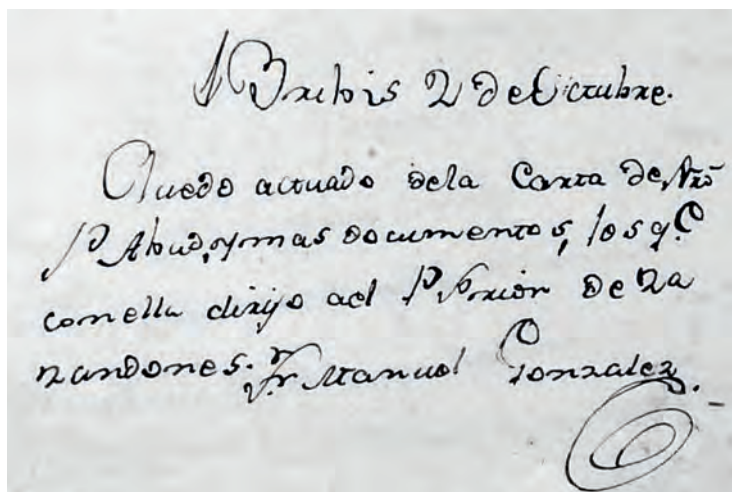 Bribis 2 de Octubre.
Quedo actuado dela Carta de Nrô
P Abad, y mas documentos, los q.e
con ella dirijo al P Prior de Na
randones. Fr Manuel Gonzalez.